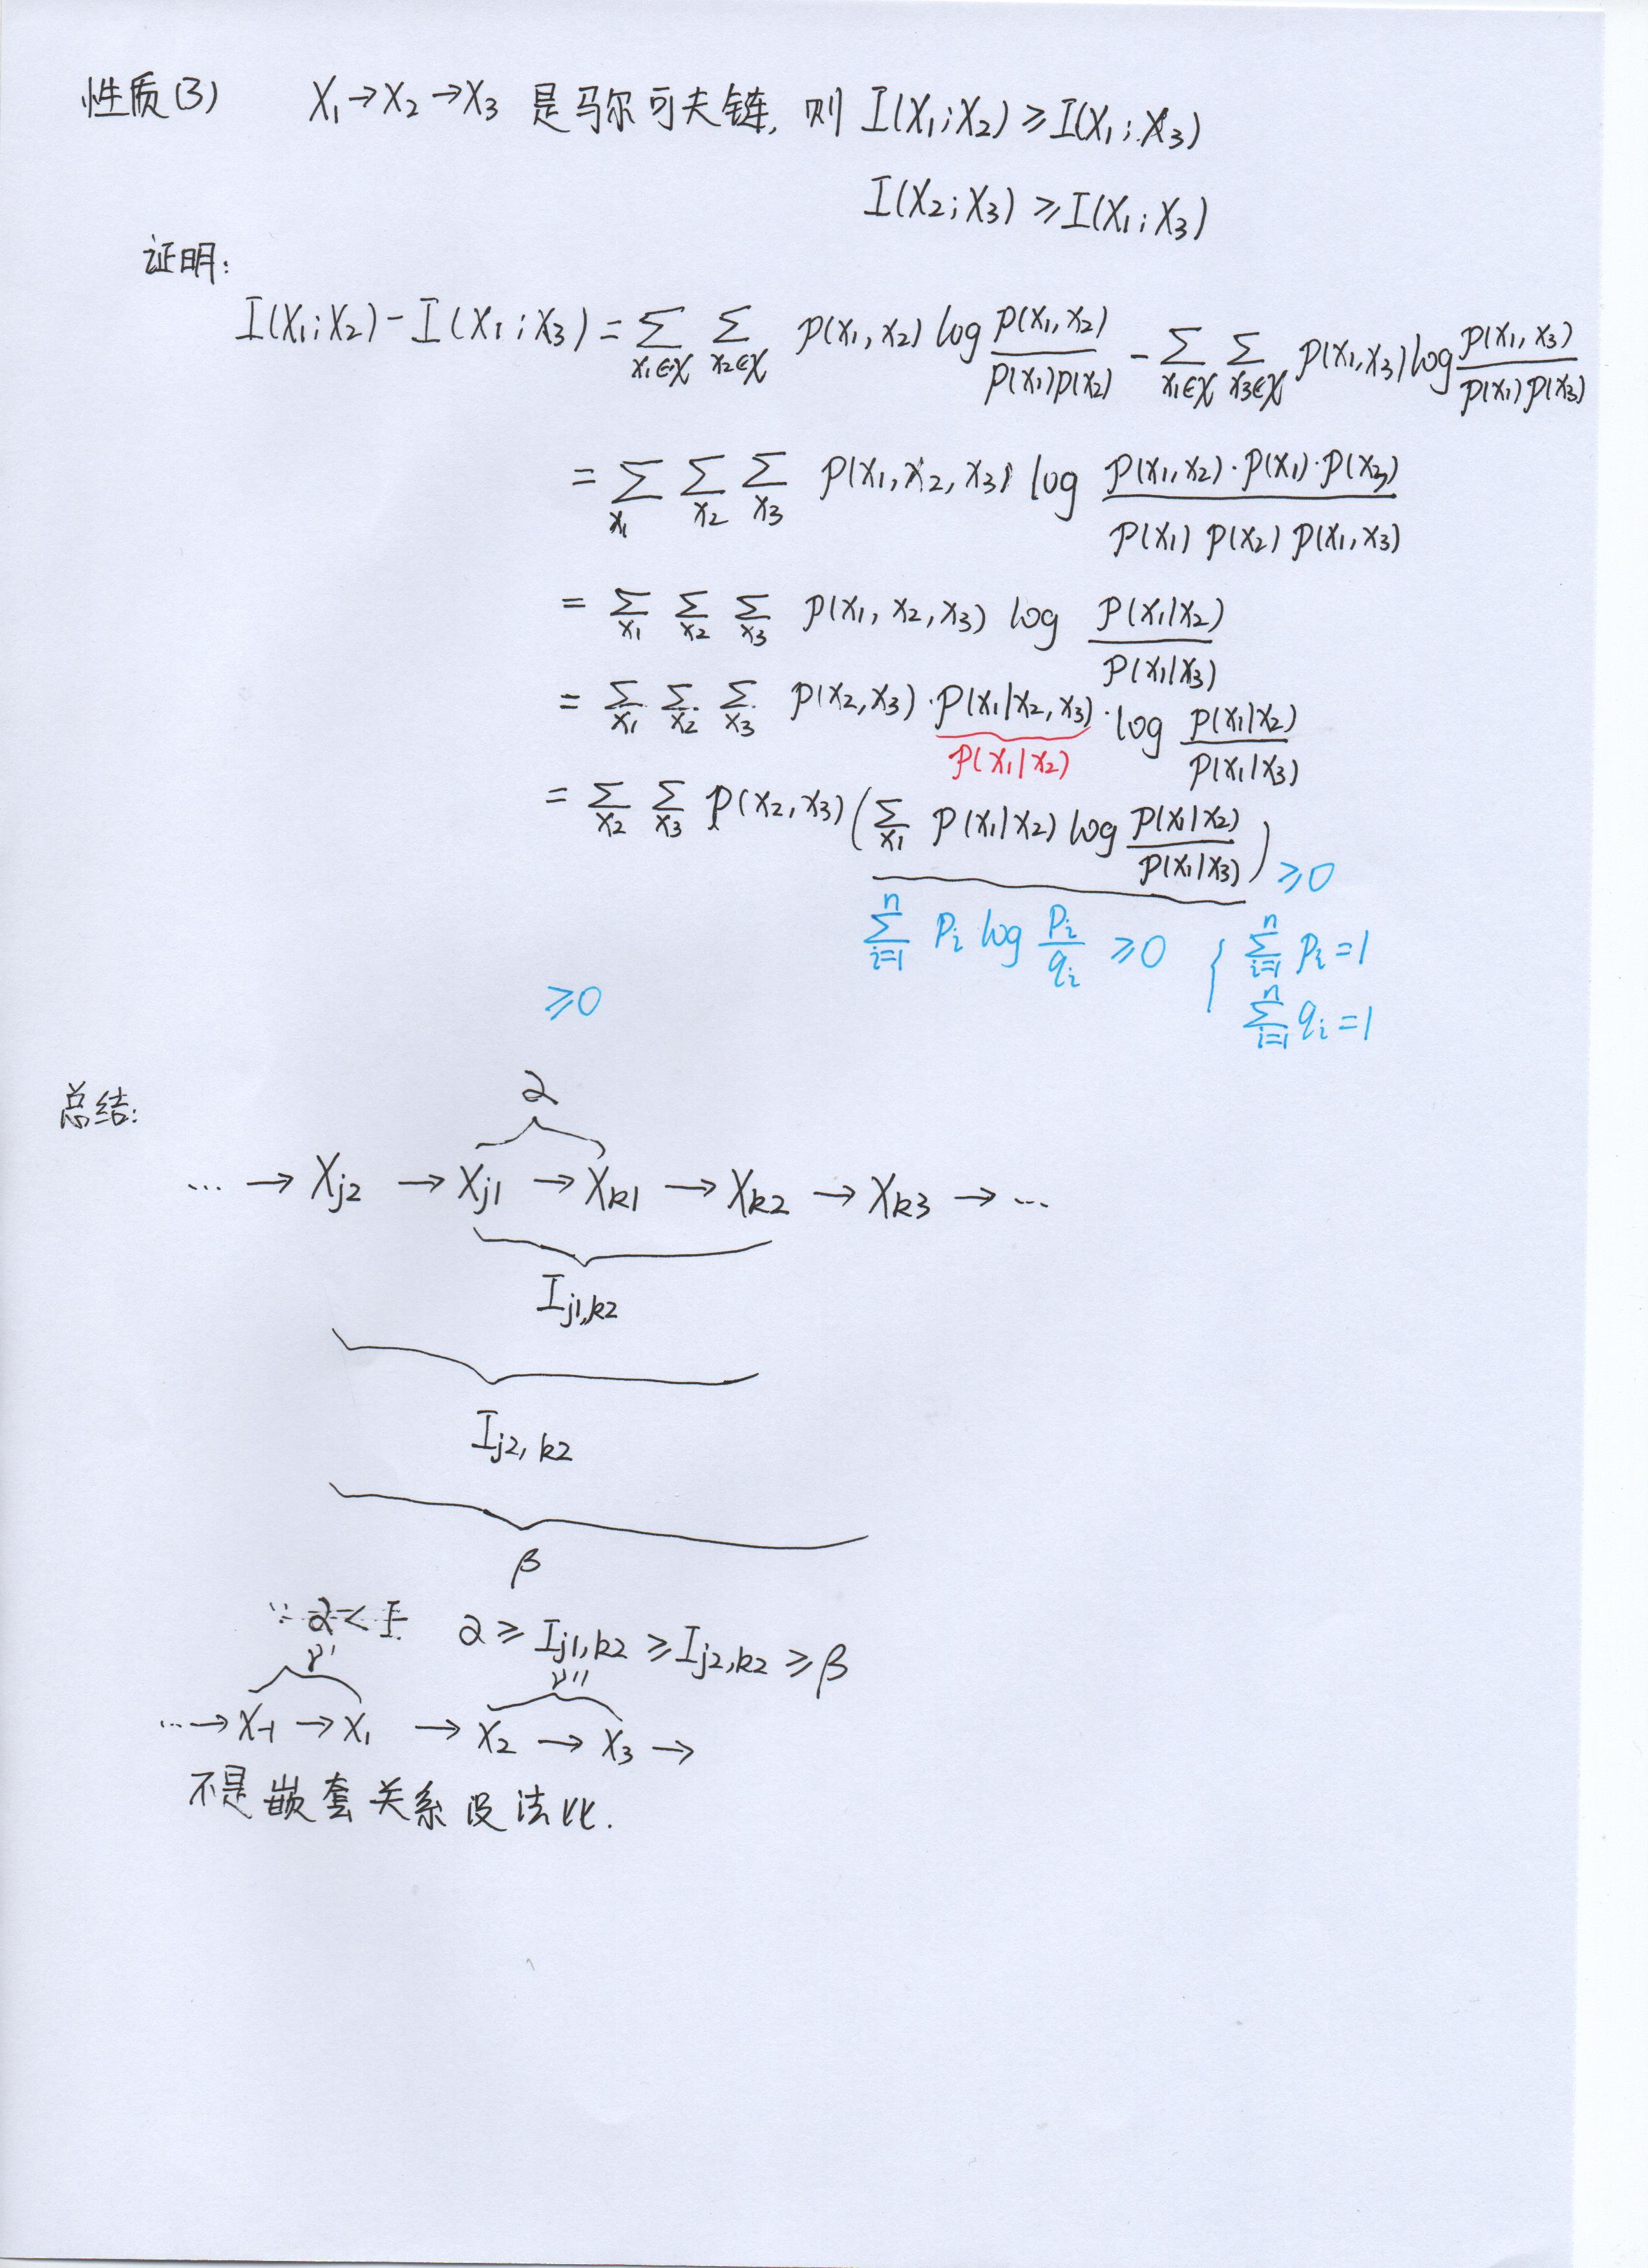 性质(3) X₁→X₂→X₃ 是马尔可夫链, 则 I(X₁;X₂)≥I(X₁;X₃)
I(X₂;X₃)≥I(X₁;X₃)
证明:
I(X₁;X₂)-I(X₁;X₃)=∑_{x₁∈χ} ∑_{x₂∈χ} p(x₁,x₂) log p(x₁,x₂)/p(x₁)p(x₂) - ∑_{x₁∈χ} ∑_{x₃∈χ} p(x₁,x₃) log p(x₁,x₃)/p(x₁)p(x₃)
= ∑_{x₁} ∑_{x₂} ∑_{x₃} p(x₁,x₂,x₃) log p(x₁,x₂)·p(x₁)·p(x₃)/p(x₁)p(x₂)p(x₁,x₃)
= ∑_{x₁} ∑_{x₂} ∑_{x₃} p(x₁,x₂,x₃) log p(x₁|x₂)/p(x₁|x₃)
= ∑_{x₁} ∑_{x₂} ∑_{x₃} p(x₂,x₃)·p(x₁|x₂,x₃)·log p(x₁|x₂)/p(x₁|x₃)
p(x₁|x₂)
= ∑_{x₂} ∑_{x₃} p(x₂,x₃)(∑_{x₁} p(x₁|x₂) log p(x₁|x₂)/p(x₁|x₃)) ≥0
∑_{i=1}^{n} pᵢ log pᵢ/qᵢ ≥0 { ∑_{i=1}^{n} pᵢ=1
∑_{i=1}^{n} qᵢ=1
≥0
总结:
α
… → X_{j2} → X_{j1} → X_{k1} → X_{k2} → X_{k3} → …
I_{j1,k2}
I_{j2,k2}
β
∵ α<I α ≥ I_{j1,k2} ≥ I_{j2,k2} ≥ β
γ' γ''
…→ X₋₁ → X₁ → X₂ → X₃ →
不是嵌套关系没法比.